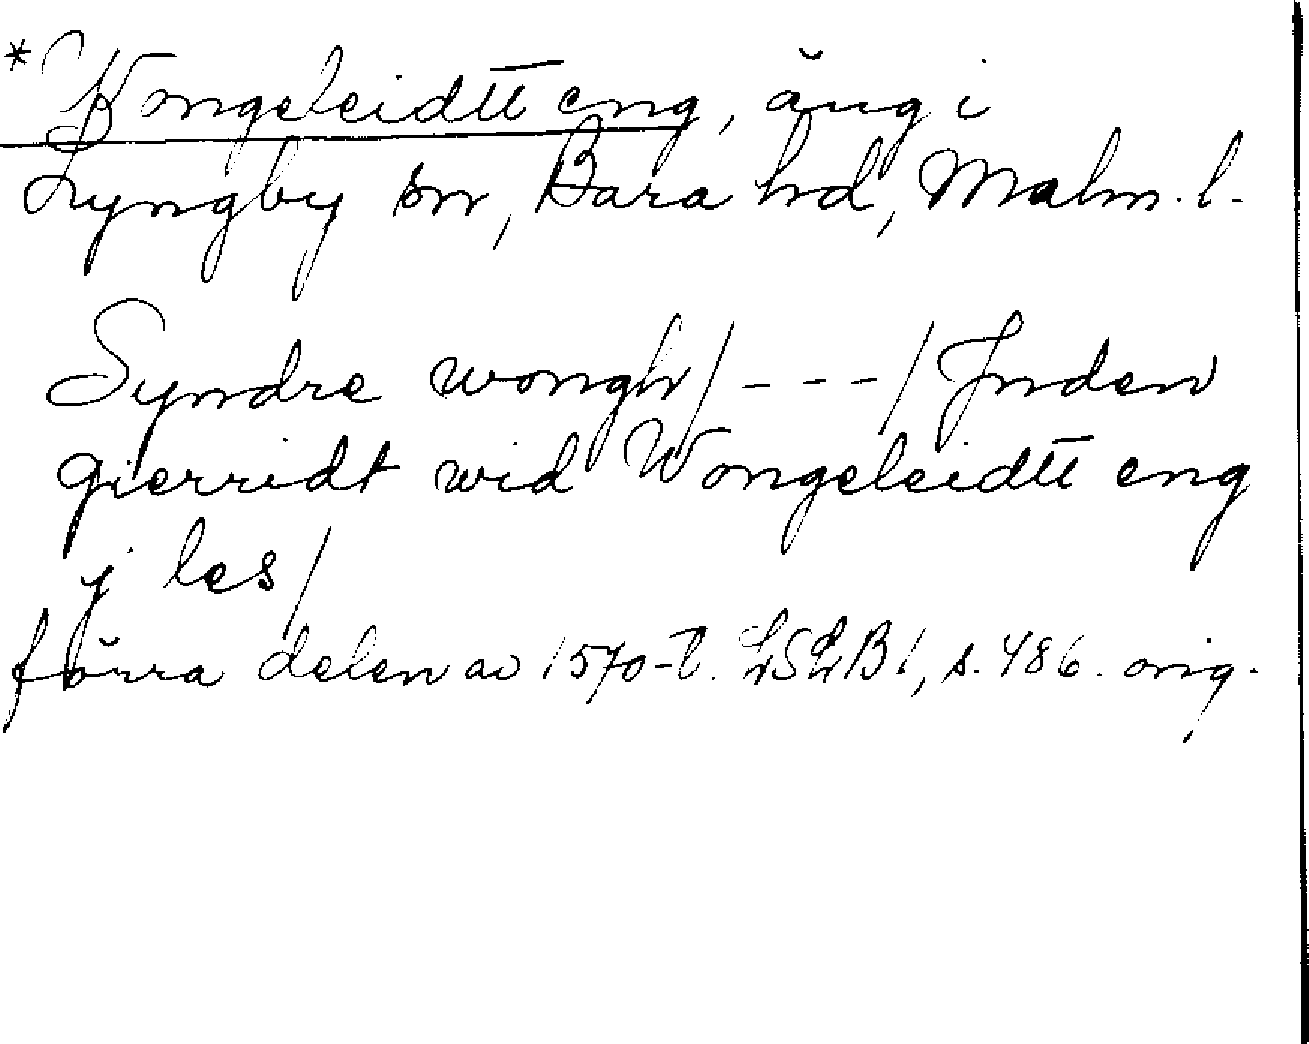 *Kongeleidtt eng, äng i
Lyngby sn, Bara hd, Malm. l.
Syndre wongh / - - - / Jnden
gierridt wid Wongeleidtt eng
j les /
förra delen av 1570-t. LSLB 1, s. 486. orig.